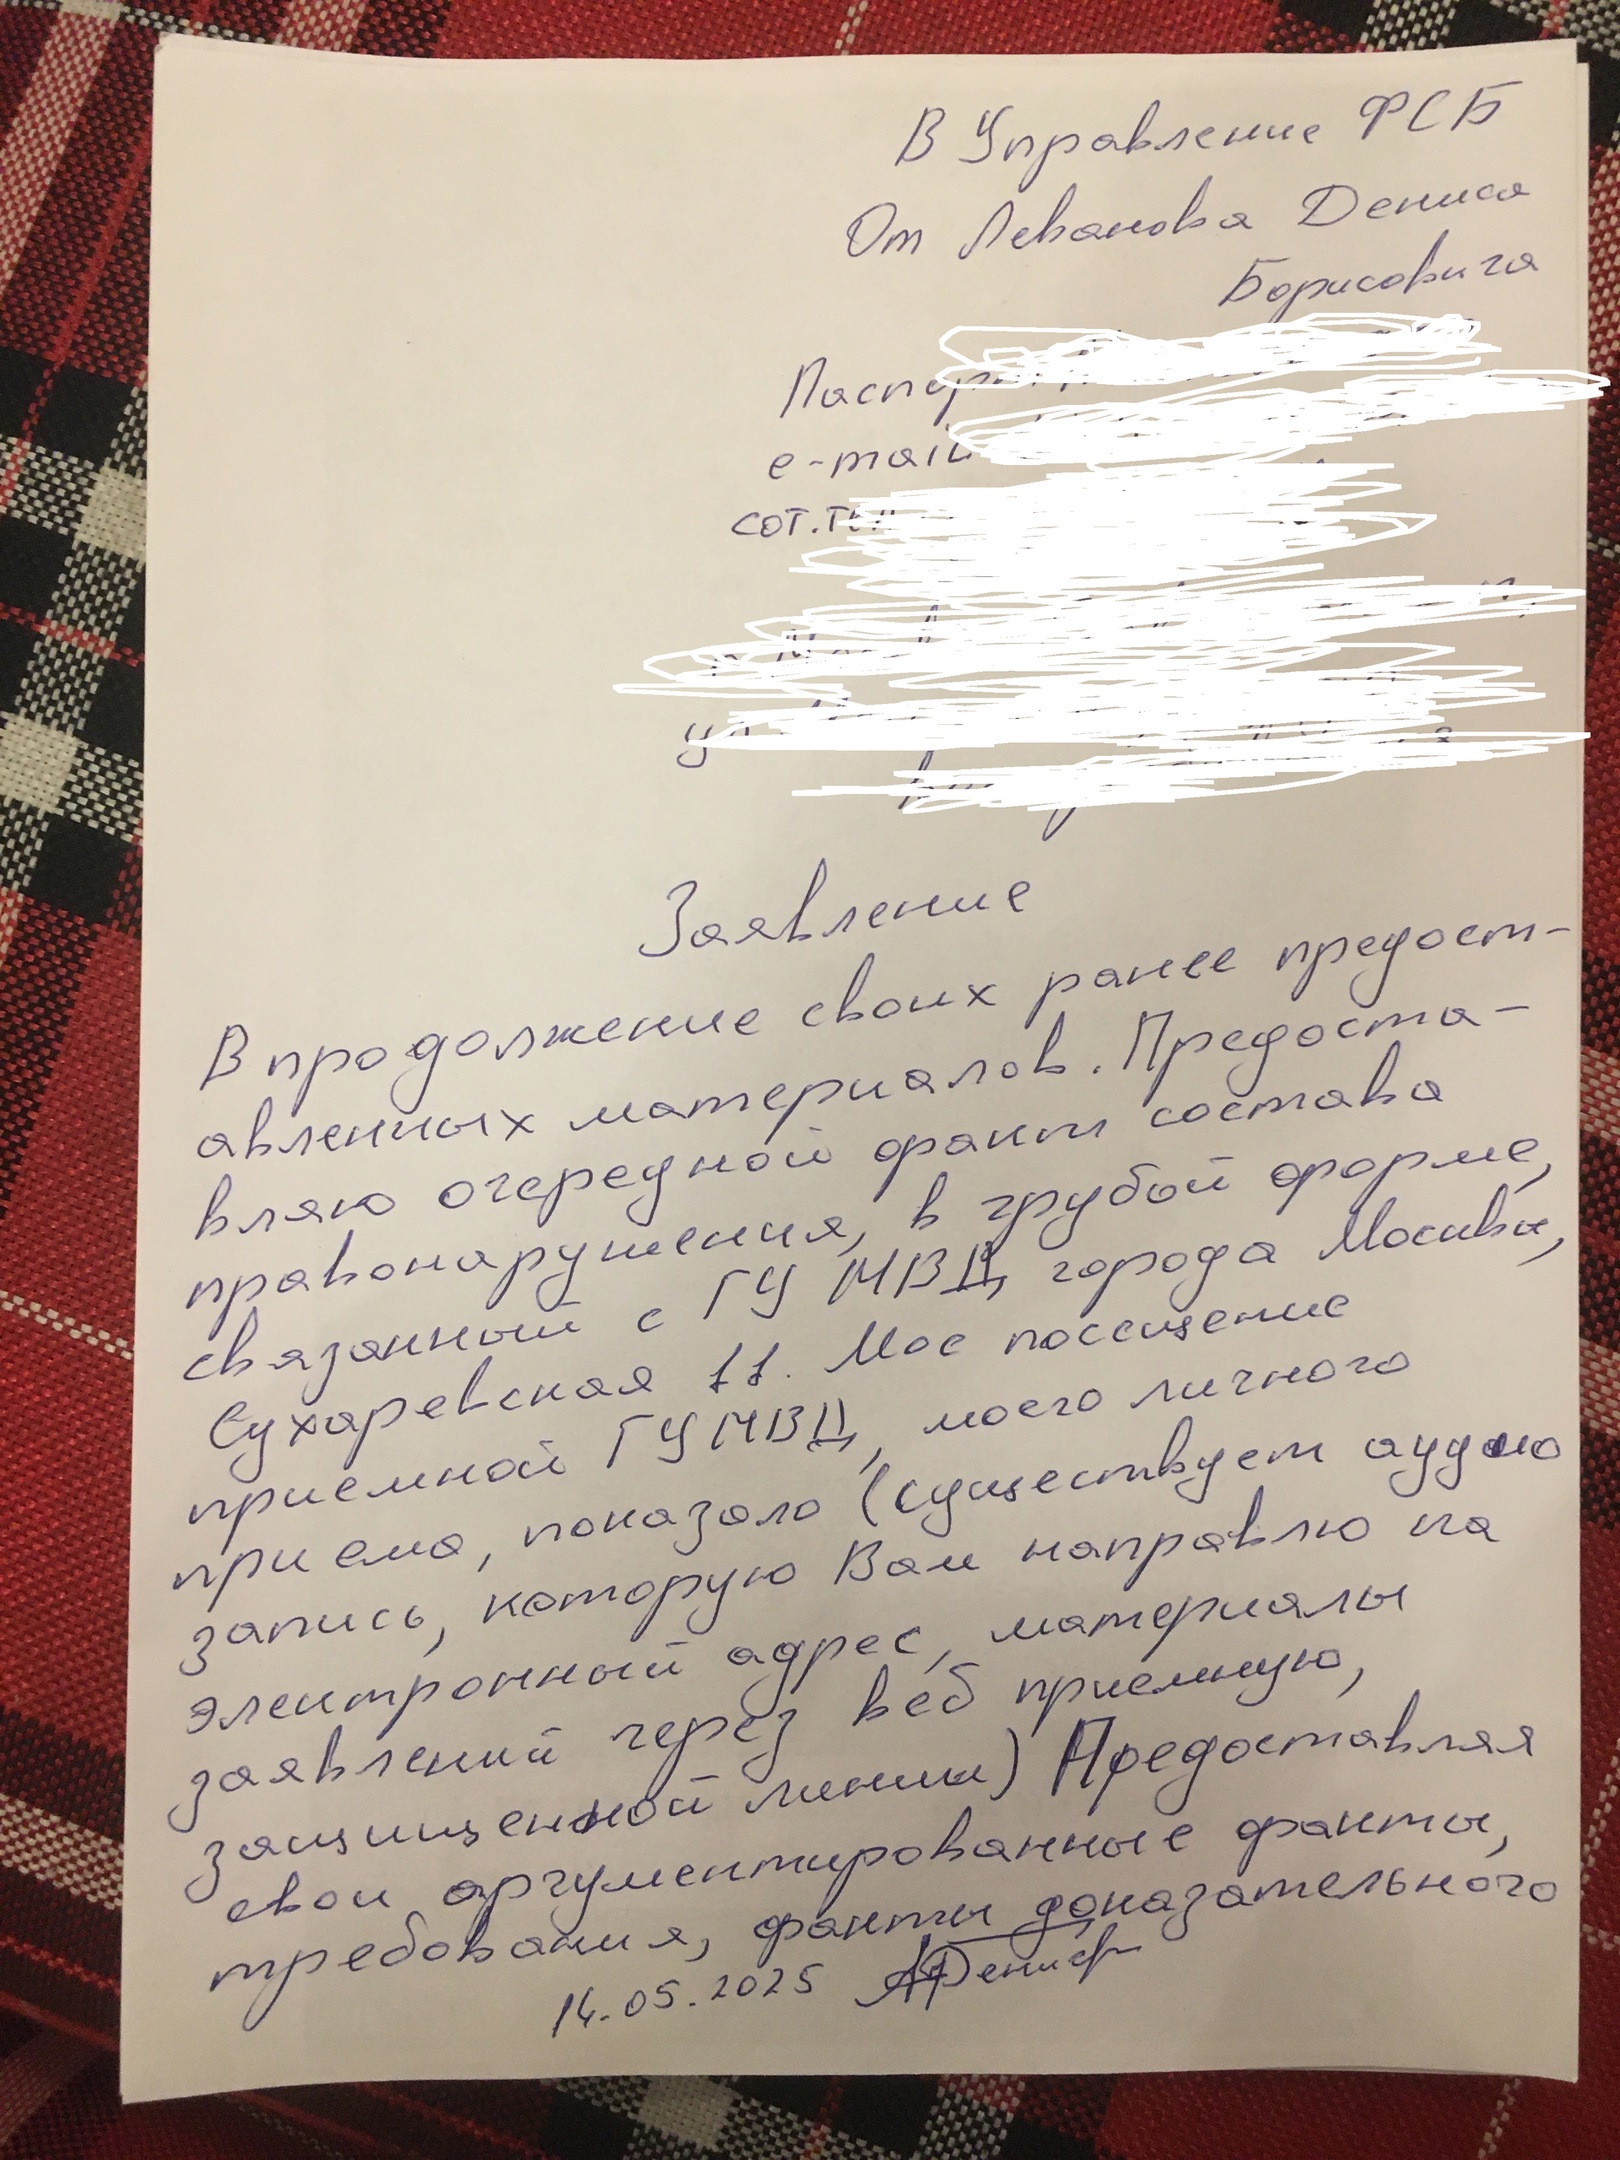 В Управление ФСБ
От Леванова Дениса
Борисовича
Паспорт
e-mail
сот.тел
ул
Заявление
В продолжение своих ранее предост-
авленных материалов. Предоста-
вляю очередной факт состава
правонарушения, в грубой форме,
связанный с ГУ МВД города Москвы,
Сухаревская 11. Мое посещение
приемной ГУ МВД, моего личного
приема, показало (существует аудио
запись, которую Вам направлю на
электронный адрес, материалы
заявлений через веб приемную,
защищенной линии) Предоставляя
свои аргументированные факты,
требования, факты доказательного
14.05.2025